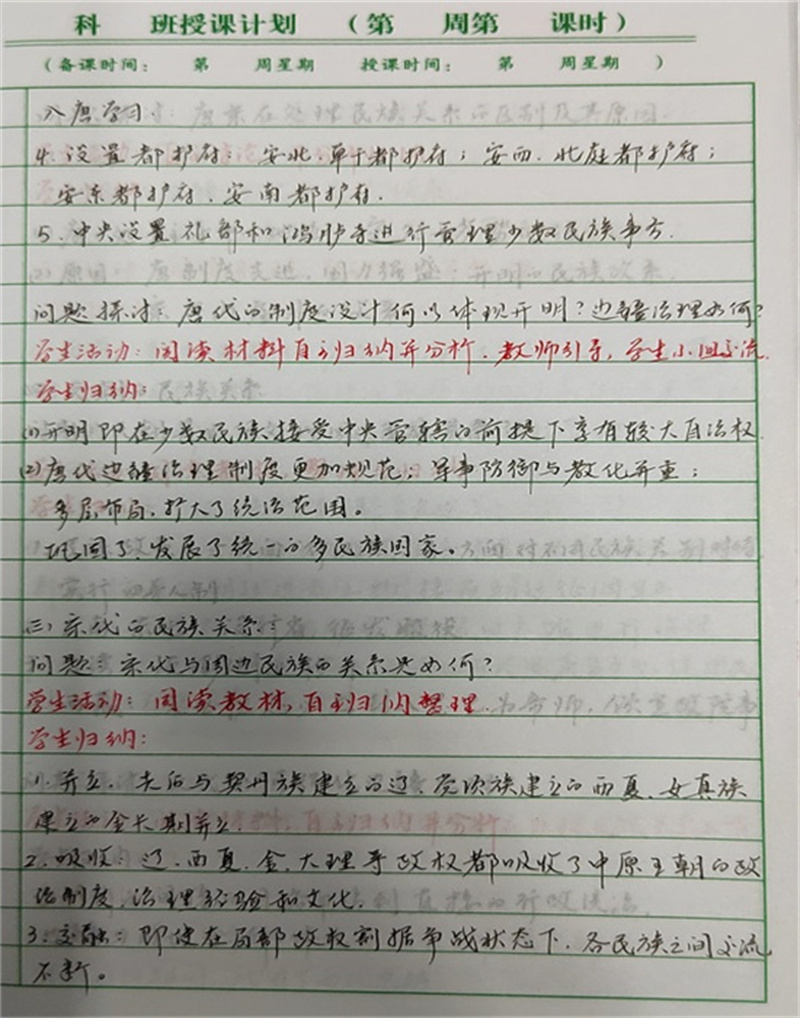 科 班授课计划 （第 周第 课时）
（备课时间： 第 周星期 授课时间： 第 周星期 ）
入唐学习.
4. 设置都护府：安北、单于都护府；安西、北庭都护府；
安东都护府、安南都护府.
5. 中央设置礼部和鸿胪寺进行管理少数民族事务.
问题探讨：唐代的制度设计何以体现开明？边疆治理如何？
学生活动：阅读材料自主归纳并分析. 教师引导，学生小组交流.
学生归纳：
(1)开明即在少数民族接受中央管辖的前提下享有较大自治权.
(2)唐代边疆治理制度更加规范；军事防御与教化并重；
多层布局，扩大了统治范围。
巩固了、发展了统一的多民族国家。
三、宋代的民族关系：
问题：宋代与周边民族的关系是如何？
学生活动：阅读教材，自主归纳整理.
学生归纳：
1. 并立. 先后与契丹族建立的辽、党项族建立的西夏、女真族
建立的金长期并立.
2. 吸收：辽、西夏、金、大理等政权都吸收了中原王朝的政
治制度、治理经验和文化.
3. 交融：即使在局部政权割据争战状态下，各民族之间交流
不断。